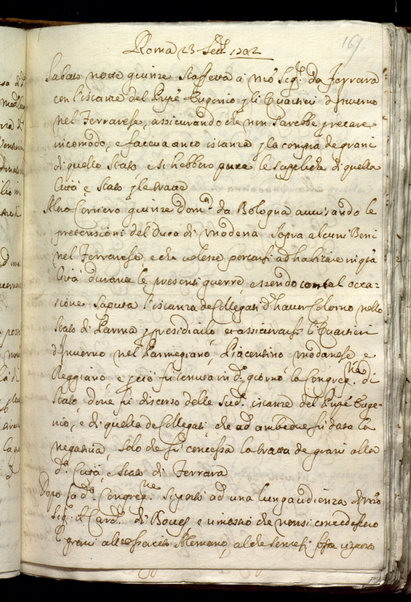 161.
Roma 23 Sett.e 1702
Sabato notte giunse Staffetta a mro Sig.r da Ferrara
con l'istanze del Prñpe Eugenio p li Quartieri d'Inverno
nel Ferrarese, assicurando che non sarebbe p recare
incomodo, e faceva anco istanza p la compra de grani
di quello Stato, e si hebbero pure le suppliche di quella
Città, e Stato p le tratte
Altro Corriero giunse Dom.ca da Bologna avvisando le
pretensioni del Duca di Modena sopra alcuni Beni
nel Ferrarese e che volesse portarsi ad habitare in q.ta
Città durante le presenti guerre essendo con tal occa=
sione saputa l'istanza de Collegati d'haver Colorno nello
Stato di Parma p presidiarlo et assicurarsi li Quartieri
d'Inverno nel Parmegiano, Piacentino, modanese e
Reggiano e perciò fu tenuta in d.o giorno la Congreg.ne di
Stato dove fu discorso delle sud.e istanze del Prñpe Euge=
nio, e di quella de Collegati, che ad ambedue fu data la
negativa. Solo che fu concessa la tratta de grani alla
d.a Città, e Stato di Ferrara
Dopo la d.a Congreg.ne seguito ad una lunga udienza di mro
Sig.r il Card.l di
grani all'esercito Alemanno, al che